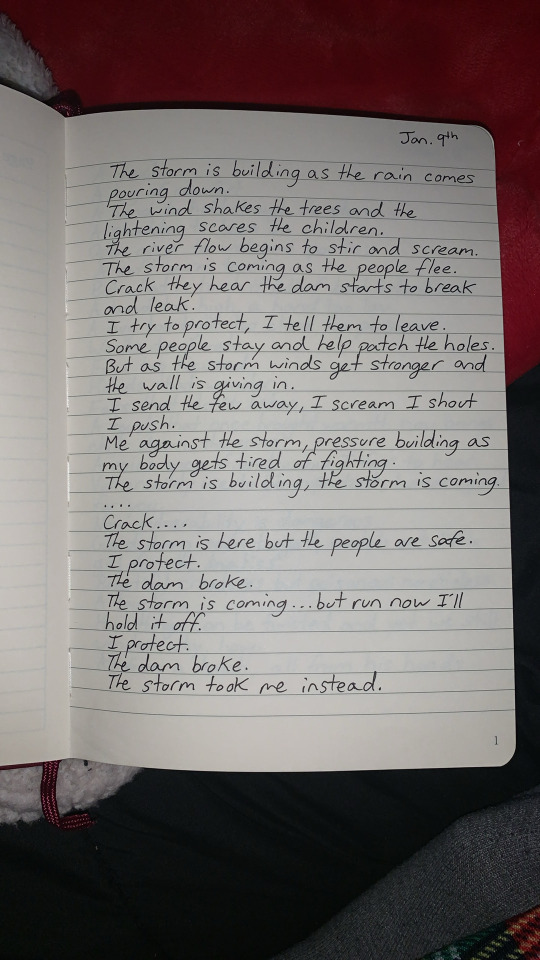 Jan. 9th
The storm is building as the rain comes
pouring down.
The wind shakes the trees and the
lightening scares the children.
The river flow begins to stir and scream.
The storm is coming as the people flee.
Crack they hear the dam starts to break
and leak.
I try to protect, I tell them to leave.
Some people stay and help patch the holes.
But as the storm winds get stronger and
the wall is giving in.
I send the few away, I scream I shout
I push.
Me against the storm, pressure building as
my body gets tired of fighting.
The storm is building, the storm is coming.
....
Crack....
The storm is here but the people are safe.
I protect.
The dam broke.
The storm is coming...but run now I'll
hold it off.
I protect.
The dam broke.
The storm took me instead.
1